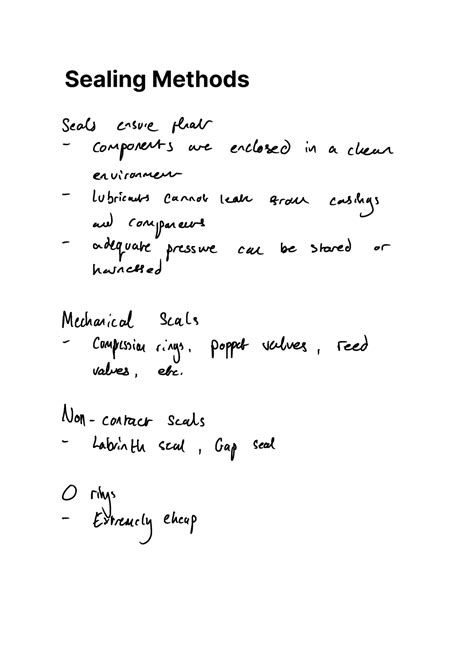 Sealing Methods
Seals ensure that
- components are enclosed in a clean
environment
- lubricants cannot leak from casings
and components
- adequate pressure can be stored or
harnessed
Mechanical Seals
- Compression rings, poppet valves, reed
valves, etc.
Non-contact seals
- Labrinth seal, Gap seal
O rings
- Extremely cheap